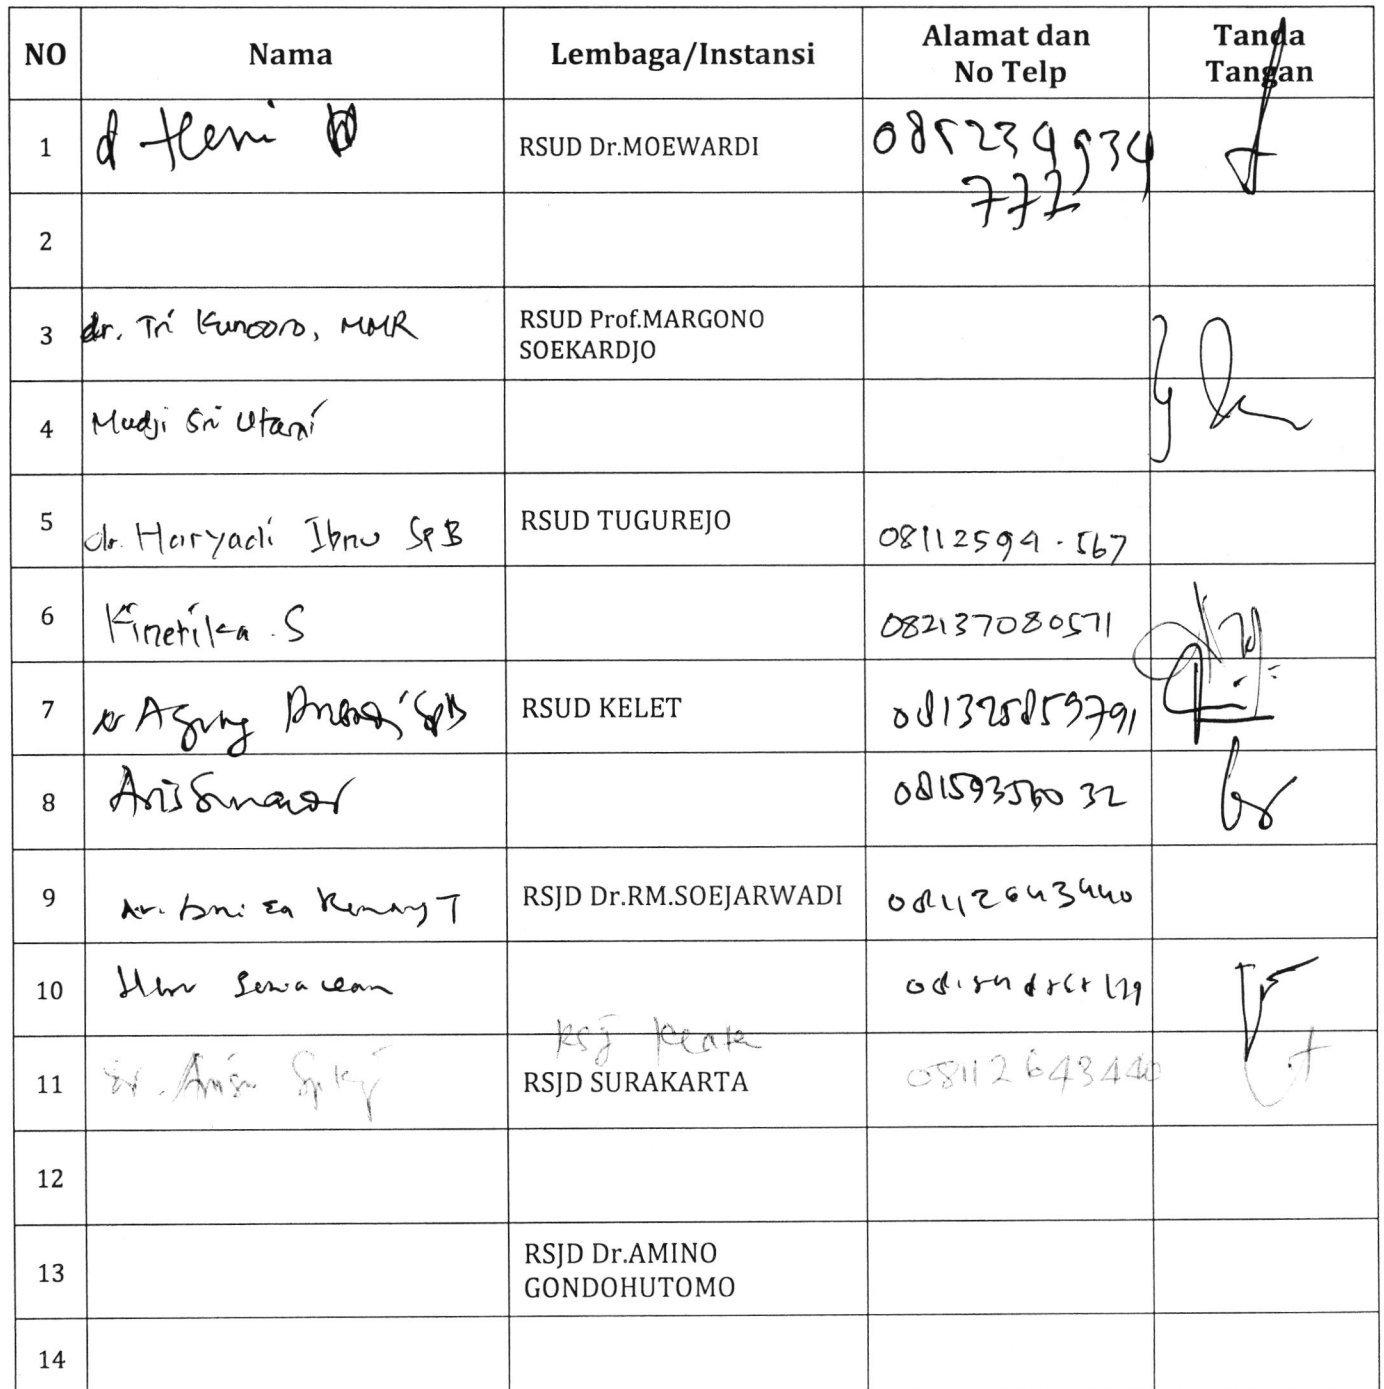 NO Nama Lembaga/Instansi Alamat dan No Telp Tanda Tangan
1 d Heni RSUD Dr.MOEWARDI 085234934
772
2
3 dr. Tri Kuncoro, MMR RSUD Prof.MARGONO
SOEKARDJO
4 Mudji Sri Utami
5 dr. Haryadi Ibnu SpB RSUD TUGUREJO 08112594-567
6 Kinetika . S 082137080571
7 dr Agung SpB RSUD KELET 081325859791
8 Aris
9 dr. RSJD Dr.RM.SOEJARWADI 08112643440
10
RSJ
11 dr. SpKJ RSJD SURAKARTA 08112643440
12
13 RSJD Dr.AMINO
GONDOHUTOMO
14